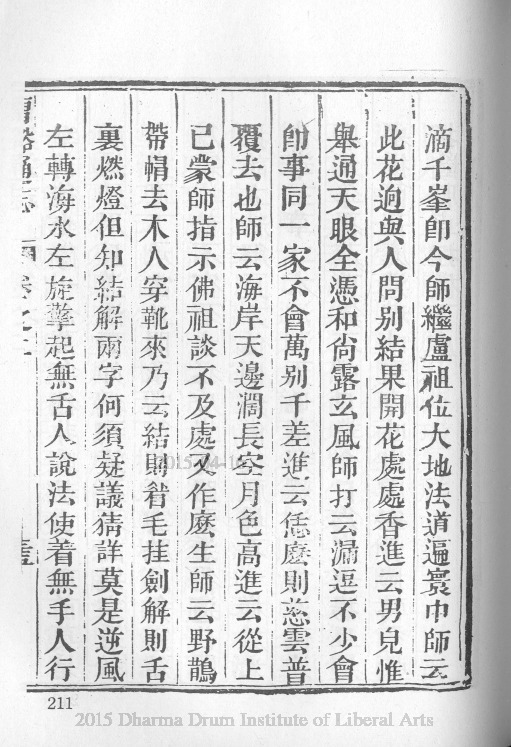 滴千峯卽今師繼盧祖位大地法道遍寰中師云
此花迥與人間别結果開花處處香進云男兒惟
舉通天眼全憑和尙露玄風師打云漏逗不少會
卽事同一家不會萬别千差進云恁麽則慈雲普
覆去也師云海岸天邊濶長空月色高進云從上
已蒙師指示佛祖談不及處又作麽生師云野鵲
帶帽去木人穿靴來乃云結則眉毛挂劍解則舌
裏燃燈但知結解兩字何須疑議猜詳莫是逆風
左轉海水左旋擎起無舌人說法使着無手人行
2015-04-16
211
2015 Dharma Drum Institute of Liberal Arts